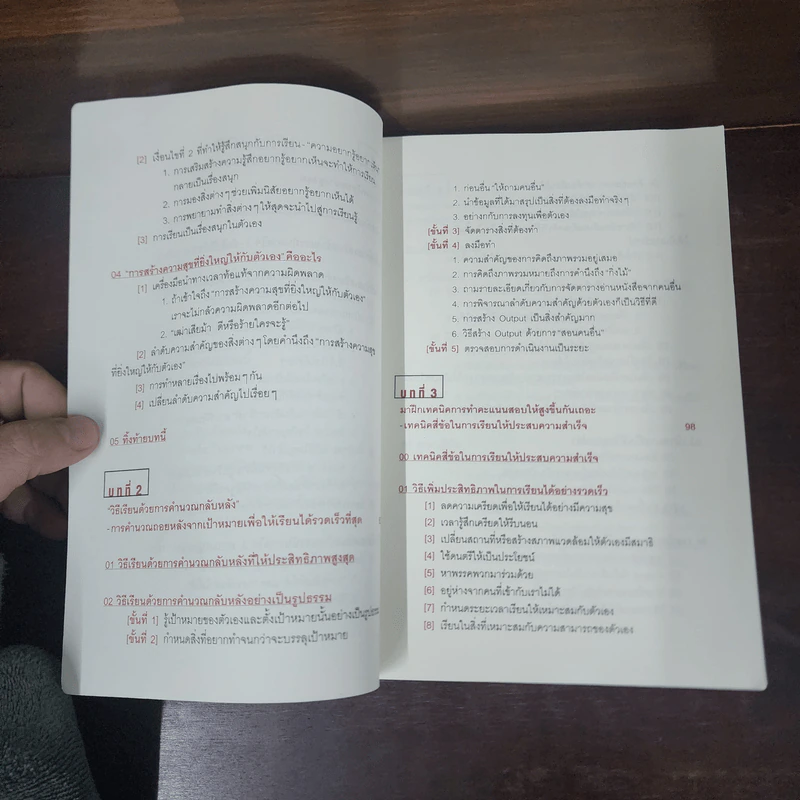 [2] เงื่อนไขที่ 2 ที่ทำให้รู้สึกสนุกกับการเรียน- "ความอยากรู้อยากเห็น"
1. การเสริมสร้างความรู้สึกอยากรู้อยากเห็นจะทำให้การเรียน
กลายเป็นเรื่องสนุก
2. การมองสิ่งต่างๆ ช่วยเพิ่มนิสัยอยากรู้อยากเห็นได้
3. การพยายามทำสิ่งต่างๆ ให้สุดจะนำไปสู่การเรียนรู้
[3] การเรียนเป็นเรื่องสนุกในตัวเอง
04 "การสร้างความสุขที่ยิ่งใหญ่ให้กับตัวเอง" คืออะไร
[1] เครื่องมือนำทางเวลาท้อแท้จากความผิดพลาด
1. ถ้าเข้าใจถึง "การสร้างความสุขที่ยิ่งใหญ่ให้กับตัวเอง"
เราจะไม่กลัวความผิดพลาดอีกต่อไป
2. "เฒ่าเสียม้า ดีหรือร้ายใครจะรู้"
[2] ลำดับความสำคัญของสิ่งต่างๆ โดยคำนึงถึง "การสร้างความสุข
ที่ยิ่งใหญ่ให้กับตัวเอง"
[3] การทำหลายเรื่องไปพร้อมๆ กัน
[4] เปลี่ยนลำดับความสำคัญไปเรื่อยๆ
05 ทิ้งท้ายบทนี้
บทที่ 2
"วิธีเรียนด้วยการคำนวณกลับหลัง"
-การคำนวณถอยหลังจากเป้าหมายเพื่อให้เรียนได้รวดเร็วที่สุด
01 วิธีเรียนด้วยการคำนวณกลับหลังที่ให้ประสิทธิภาพสูงสุด
02 วิธีเรียนด้วยการคำนวณกลับหลังอย่างเป็นรูปธรรม
[ขั้นที่ 1] รู้เป้าหมายของตัวเองและตั้งเป้าหมายนั้นอย่างเป็นรูปธรรม
[ขั้นที่ 2] กำหนดสิ่งที่อยากทำจนกว่าจะบรรลุเป้าหมาย
1. ก่อนอื่น "ให้ถามคนอื่น"
2. นำข้อมูลที่ได้มาสรุปเป็นสิ่งที่ต้องลงมือทำจริงๆ
3. อย่างกกับการลงทุนเพื่อตัวเอง
[ขั้นที่ 3] จัดตารางสิ่งที่ต้องทำ
[ขั้นที่ 4] ลงมือทำ
1. ความสำคัญของการคิดถึงภาพรวมอยู่เสมอ
2. การคิดถึงภาพรวมหมายถึงการคำนึงถึง "กิ่งไม้"
3. ถามรายละเอียดเกี่ยวกับการจัดตารางอ่านหนังสือจากคนอื่น
4. การพิจารณาลำดับความสำคัญด้วยตัวเองก็เป็นวิธีที่ดี
5. การสร้าง Output เป็นสิ่งสำคัญมาก
6. วิธีสร้าง Output ด้วยการ "สอนคนอื่น"
[ขั้นที่ 5] ตรวจสอบการดำเนินงานเป็นระยะ
บทที่ 3
มาฝึกเทคนิคการทำคะแนนสอบให้สูงขึ้นกันเถอะ
-เทคนิคสี่ข้อในการเรียนให้ประสบความสำเร็จ 98
00 เทคนิคสี่ข้อในการเรียนให้ประสบความสำเร็จ
01 วิธีเพิ่มประสิทธิภาพในการเรียนได้อย่างรวดเร็ว
[1] ลดความเครียดเพื่อให้เรียนได้อย่างมีความสุข
[2] เวลารู้สึกเครียดให้รีบนอน
[3] เปลี่ยนสถานที่หรือสร้างสภาพแวดล้อมให้ตัวเองมีสมาธิ
[4] ใช้ดนตรีให้เป็นประโยชน์
[5] หาพรรคพวกมาร่วมด้วย
[6] อยู่ห่างจากคนที่เข้ากับเราไม่ได้
[7] กำหนดระยะเวลาเรียนให้เหมาะสมกับตัวเอง
[8] เรียนในสิ่งที่เหมาะสมกับความสามารถของตัวเอง